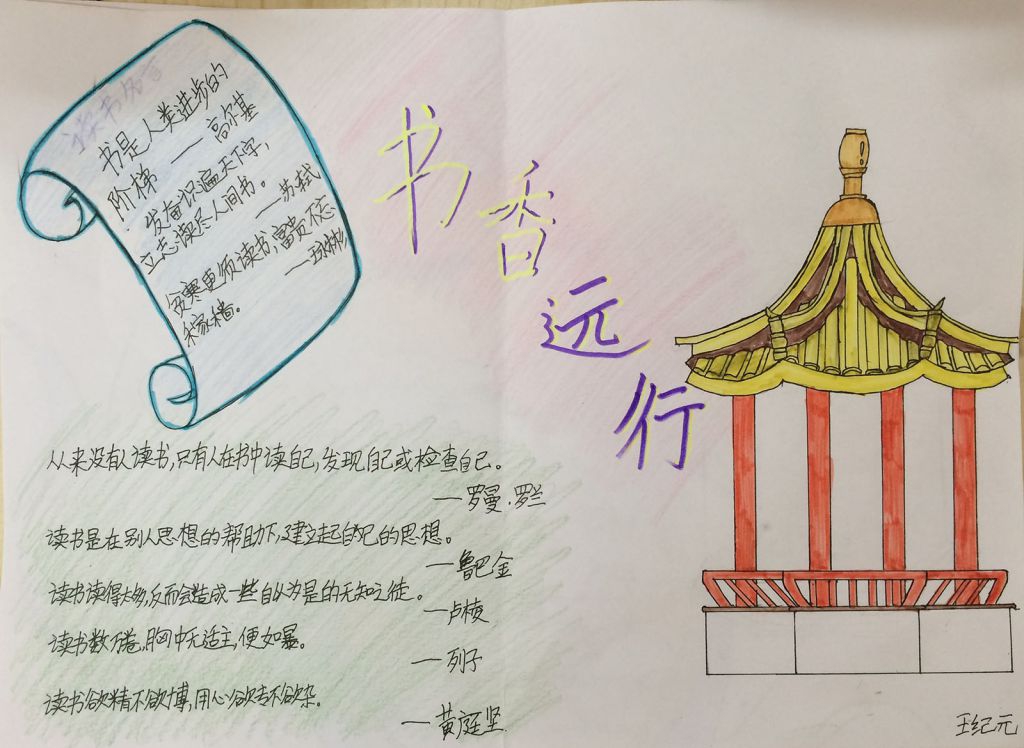 读书名言
书是人类进步的
阶梯 —— 高尔基
发奋识遍天下字,
立志读尽人间书。
——苏轼
贫寒更须读书,富贵不忘
稼穑。
——王永彬
书香远行
从来没有人读书,只有人在书中读自己,发现自己或检查自己。
——罗曼.罗兰
读书是在别人思想的帮助下,建立起自己的思想。
——鲁巴金
读书读得太多,反而会造成一些自以为是的无知之徒。
——卢梭
读书数万卷,胸中无适主,便如暴。
——列子
读书欲精不欲博,用心欲专不欲杂。
——黄庭坚
王纪元